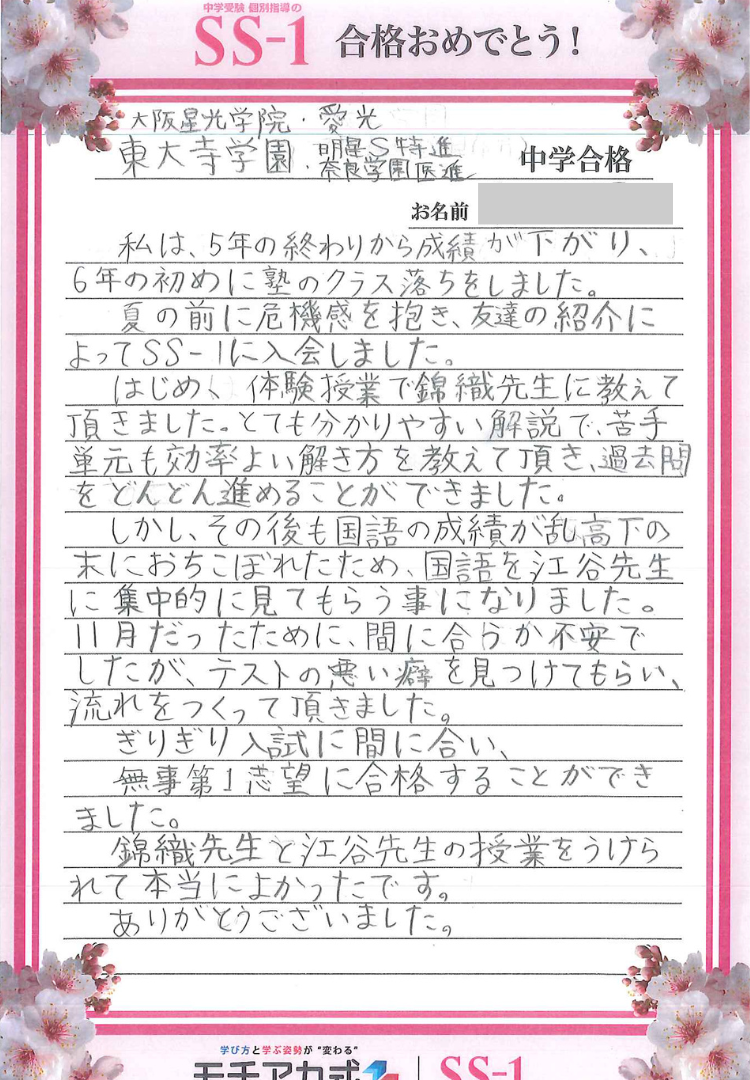 中学受験 個別指導の
SS-1 合格おめでとう!
大阪星光学院・愛光
東大寺学園・明星S特進
奈良学園医進
中学合格
お名前
私は、5年の終わりから成績が下がり、
6年の初めに塾のクラス落ちをしました。
夏の前に危機感を抱き、友達の紹介に
よってSS-1に入会しました。
はじめ、体験授業で錦織先生に教えて
頂きました。とても分かりやすい解説で、苦手
単元も効率よい解き方を教えて頂き、過去問
をどんどん進めることができました。
しかし、その後も国語の成績が乱高下の
末におちこぼれたため、国語を江谷先生
に集中的に見てもらう事になりました。
11月だったために、間に合うか不安で
したが、テストの悪い癖を見つけてもらい、
流れをつくって頂きました。
ぎりぎり入試に間に合い、
無事第1志望に合格することができ
ました。
錦織先生と江谷先生の授業をうけら
れて本当によかったです。
ありがとうございました。
学び方と学ぶ姿勢が"変わる"
モチアカ式 | SS-1